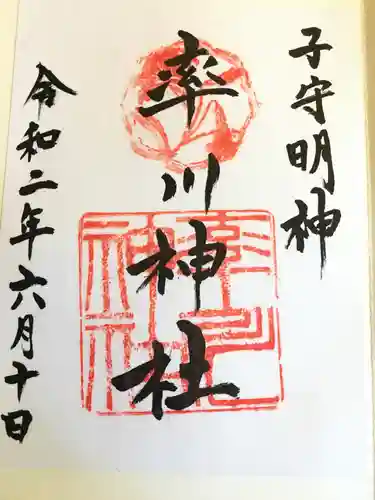 子守明神
率川神社
令和二年六月十日